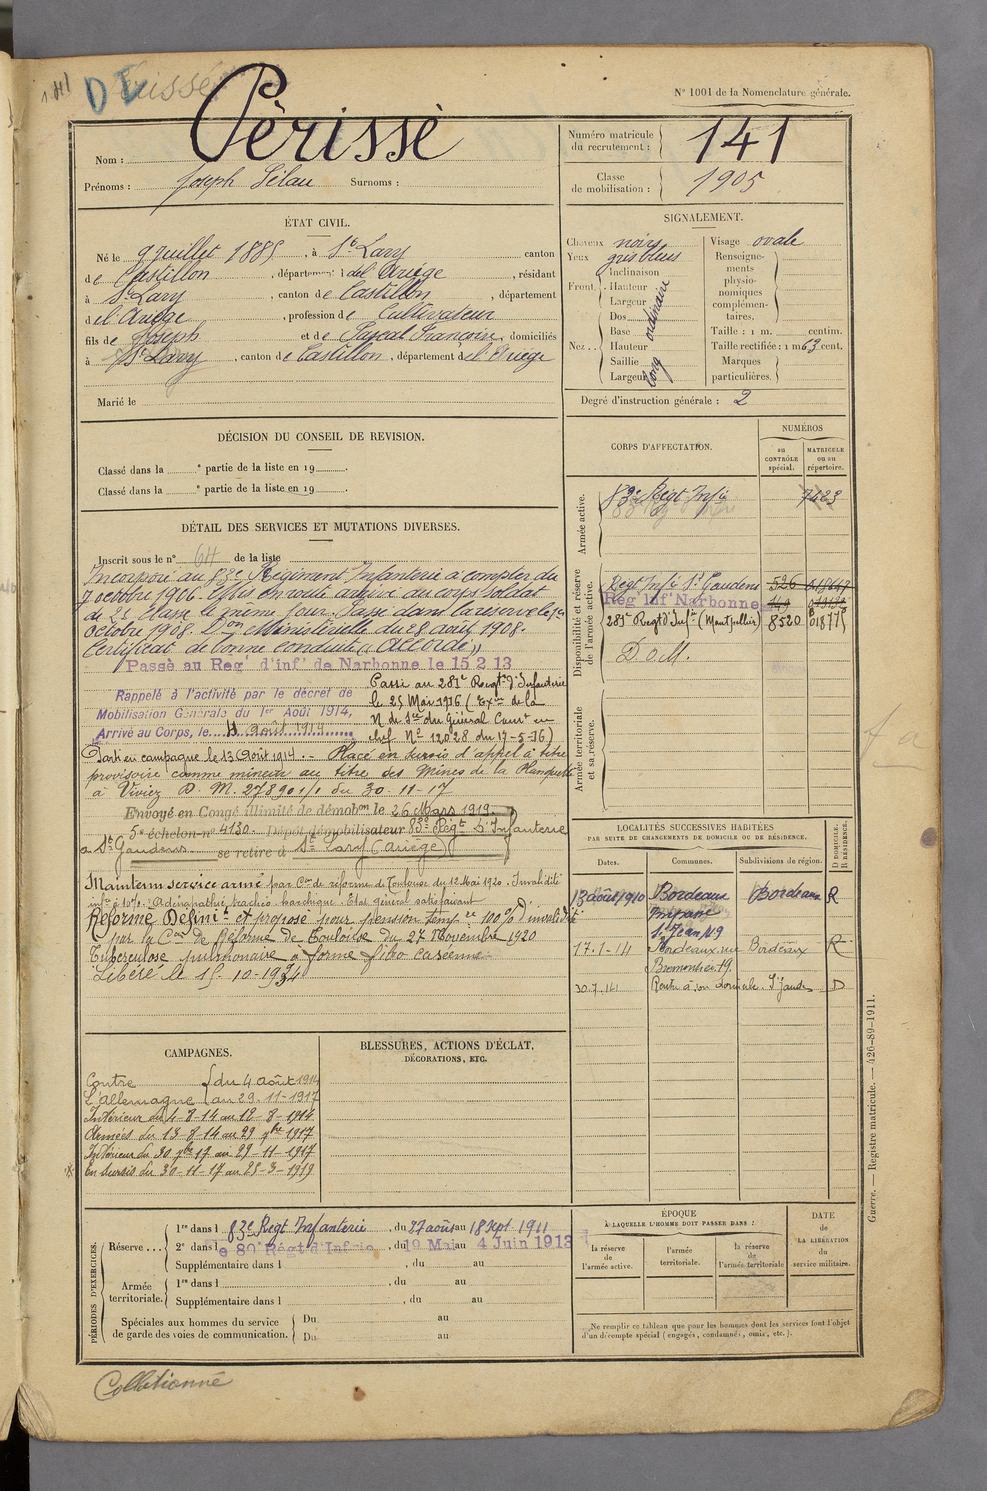 N° 1001 de la Nomenclature générale.
Nom : Périssé
Prénoms : Joseph Surnoms :
Numéro matricule du recrutement : 141
Classe de mobilisation : 1905
ÉTAT CIVIL.
Né le 9 juillet 1885, à St Lary canton
de Castillon, département de l'Ariège, résidant
à St Lary, canton de Castillon, département
de l'Ariège, profession de Cultivateur
fils de Joseph et de Pascal Françoise, domiciliés
à St Lary, canton de Castillon, département de l'Ariège
Marié le
SIGNALEMENT.
Cheveux noirs
Yeux gris bleus
Front. Inclinaison
Hauteur
Largeur
ordinaire
Nez.. Dos
Base
Hauteur
Saillie
Largeur
long
Visage ovale
Renseignements physionomiques complémentaires.
Taille : 1 m. centim.
Taille rectifiée : 1 m 63 cent.
Marques particulières.
Degré d'instruction générale : 2
DÉCISION DU CONSEIL DE REVISION.
Classé dans la e partie de la liste en 19 .
Classé dans la e partie de la liste en 19 .
DÉTAIL DES SERVICES ET MUTATIONS DIVERSES.
Inscrit sous le n° 64 de la liste
Incorporé au 83e Régiment Infanterie à compter du
7 octobre 1906. et arrivé au corps soldat
de 2e classe le même jour. Passé dans la réserve le 1er
octobre 1908. Don Ministérielle du 28 août 1908.
Certificat de bonne conduite « Accordé »
Passé au Reg' d'inf' de Narbonne le 15 2 13
Rappelé à l'activité par le décret de
Mobilisation Générale du 1er Août 1914,
Arrivé au Corps, le 4 Août 1914
Passé au 281e Régt d'Infanterie
le 25 Mai 1916 (Exon de la
N. de Sce du Général Comt en
chef N° 12028 du 17-5-16)
Parti en campagne le 13 Août 1914. - Placé en sursis d'appel à titre
provisoire comme mineur au titre des Mines de la
à Viviez D. M. 278901/1 du 30-11-17
Envoyé en Congé illimité de démobon le 26 Mars 1919
5e échelon n° 4130 Dépôt démobilisateur 83e Régt d'Infanterie
à St Gaudens se retire à St Lary (Ariège)
Maintenu service armé par Con de réforme de Toulouse du 12 Mai 1920. Invalidité
infre à 10%. Adénopathie trachéo-bronchique. Etat général satisfaisant
Réformé Définit et proposé pour pension tempre 100% d'invalidité
par la Con de Réforme de Toulouse du 27 Novembre 1920
Tuberculose pulmonaire à forme fibro caséeuse
Libéré le 15-10-1934
CORPS D'AFFECTATION.
NUMÉROS
au CONTRÔLE spécial.
MATRICULE ou au répertoire.
Armée active.
83e Régt Infie 7423
Disponibilité et réserve de l'armée active.
Régt Infie St Gaudens 526
Reg' Inf' Narbonne 149
281e Régt d'Infie (Montpellier) 8520 018775
D.O.M.
Armée territoriale et sa réserve.
LOCALITÉS SUCCESSIVES HABITÉES
PAR SUITE DE CHANGEMENTS DE DOMICILE OU DE RÉSIDENCE.
Dates. Communes. Subdivisions de région. D DOMICILE. R RÉSIDENCE.
13 août 1910 Bordeaux Bordeaux R
Impasse
St Jean, 49
17-1-14 Bordeaux rue Bordeaux R
Bremontier 19.
30.7.14 Rentre à son domicile. St Gaudens D
CAMPAGNES.
Contre l'Allemagne { du 4 août 1914
au 29-11-1917
Intérieur du 4-8-14 au 12-8-1914
Armées du 13-8-14 au 29 9bre 1917
Intérieur du 30 9bre 17 au 29-11-1917
En sursis du 30-11-17 au 25-3-1919
BLESSURES, ACTIONS D'ÉCLAT.
DÉCORATIONS, ETC.
PÉRIODES D'EXERCICES.
Réserve... 1re dans l 83e Régt Infanterie, du 27 août au 18 sept 1911
2e dans l e 80e Régt d'Infrie, du 19 Mai au 4 Juin 1913
Supplémentaire dans l , du au
Armée territoriale. 1re dans l , du au
Supplémentaire dans l , du au
Spéciales aux hommes du service de garde des voies de communication. Du au
Du au
ÉPOQUE
À LAQUELLE L'HOMME DOIT PASSER DANS :
la réserve de l'armée active.
l'armée territoriale.
la réserve de l'armée territoriale
DATE de LA LIBÉRATION du service militaire.
Ne remplir ce tableau que pour les hommes dont les services font l'objet
d'un décompte spécial (engagés, condamnés, omis, etc.).
Guerre. — Registre matricule. — 426-89-1911.
Collationné